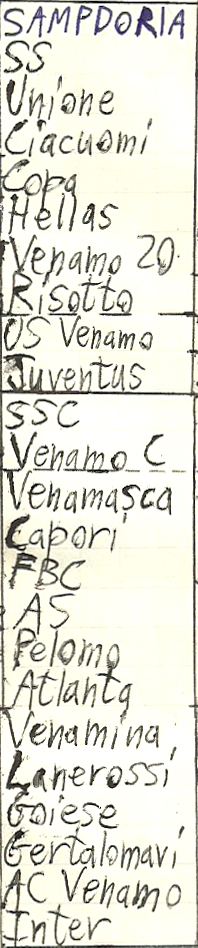 SAMPDORIA
SS
Unione
Ciacuomi
Copa
Hellas
Venamo 20
Risotto
US Venamo
Juventus
SSC
Venamo C
Venamasca
Capori
FBC
AS
Pelomo
Atlanta
Venamina
Lanerossi
Goiese
Gertalomavi
AC Venamo
Inter